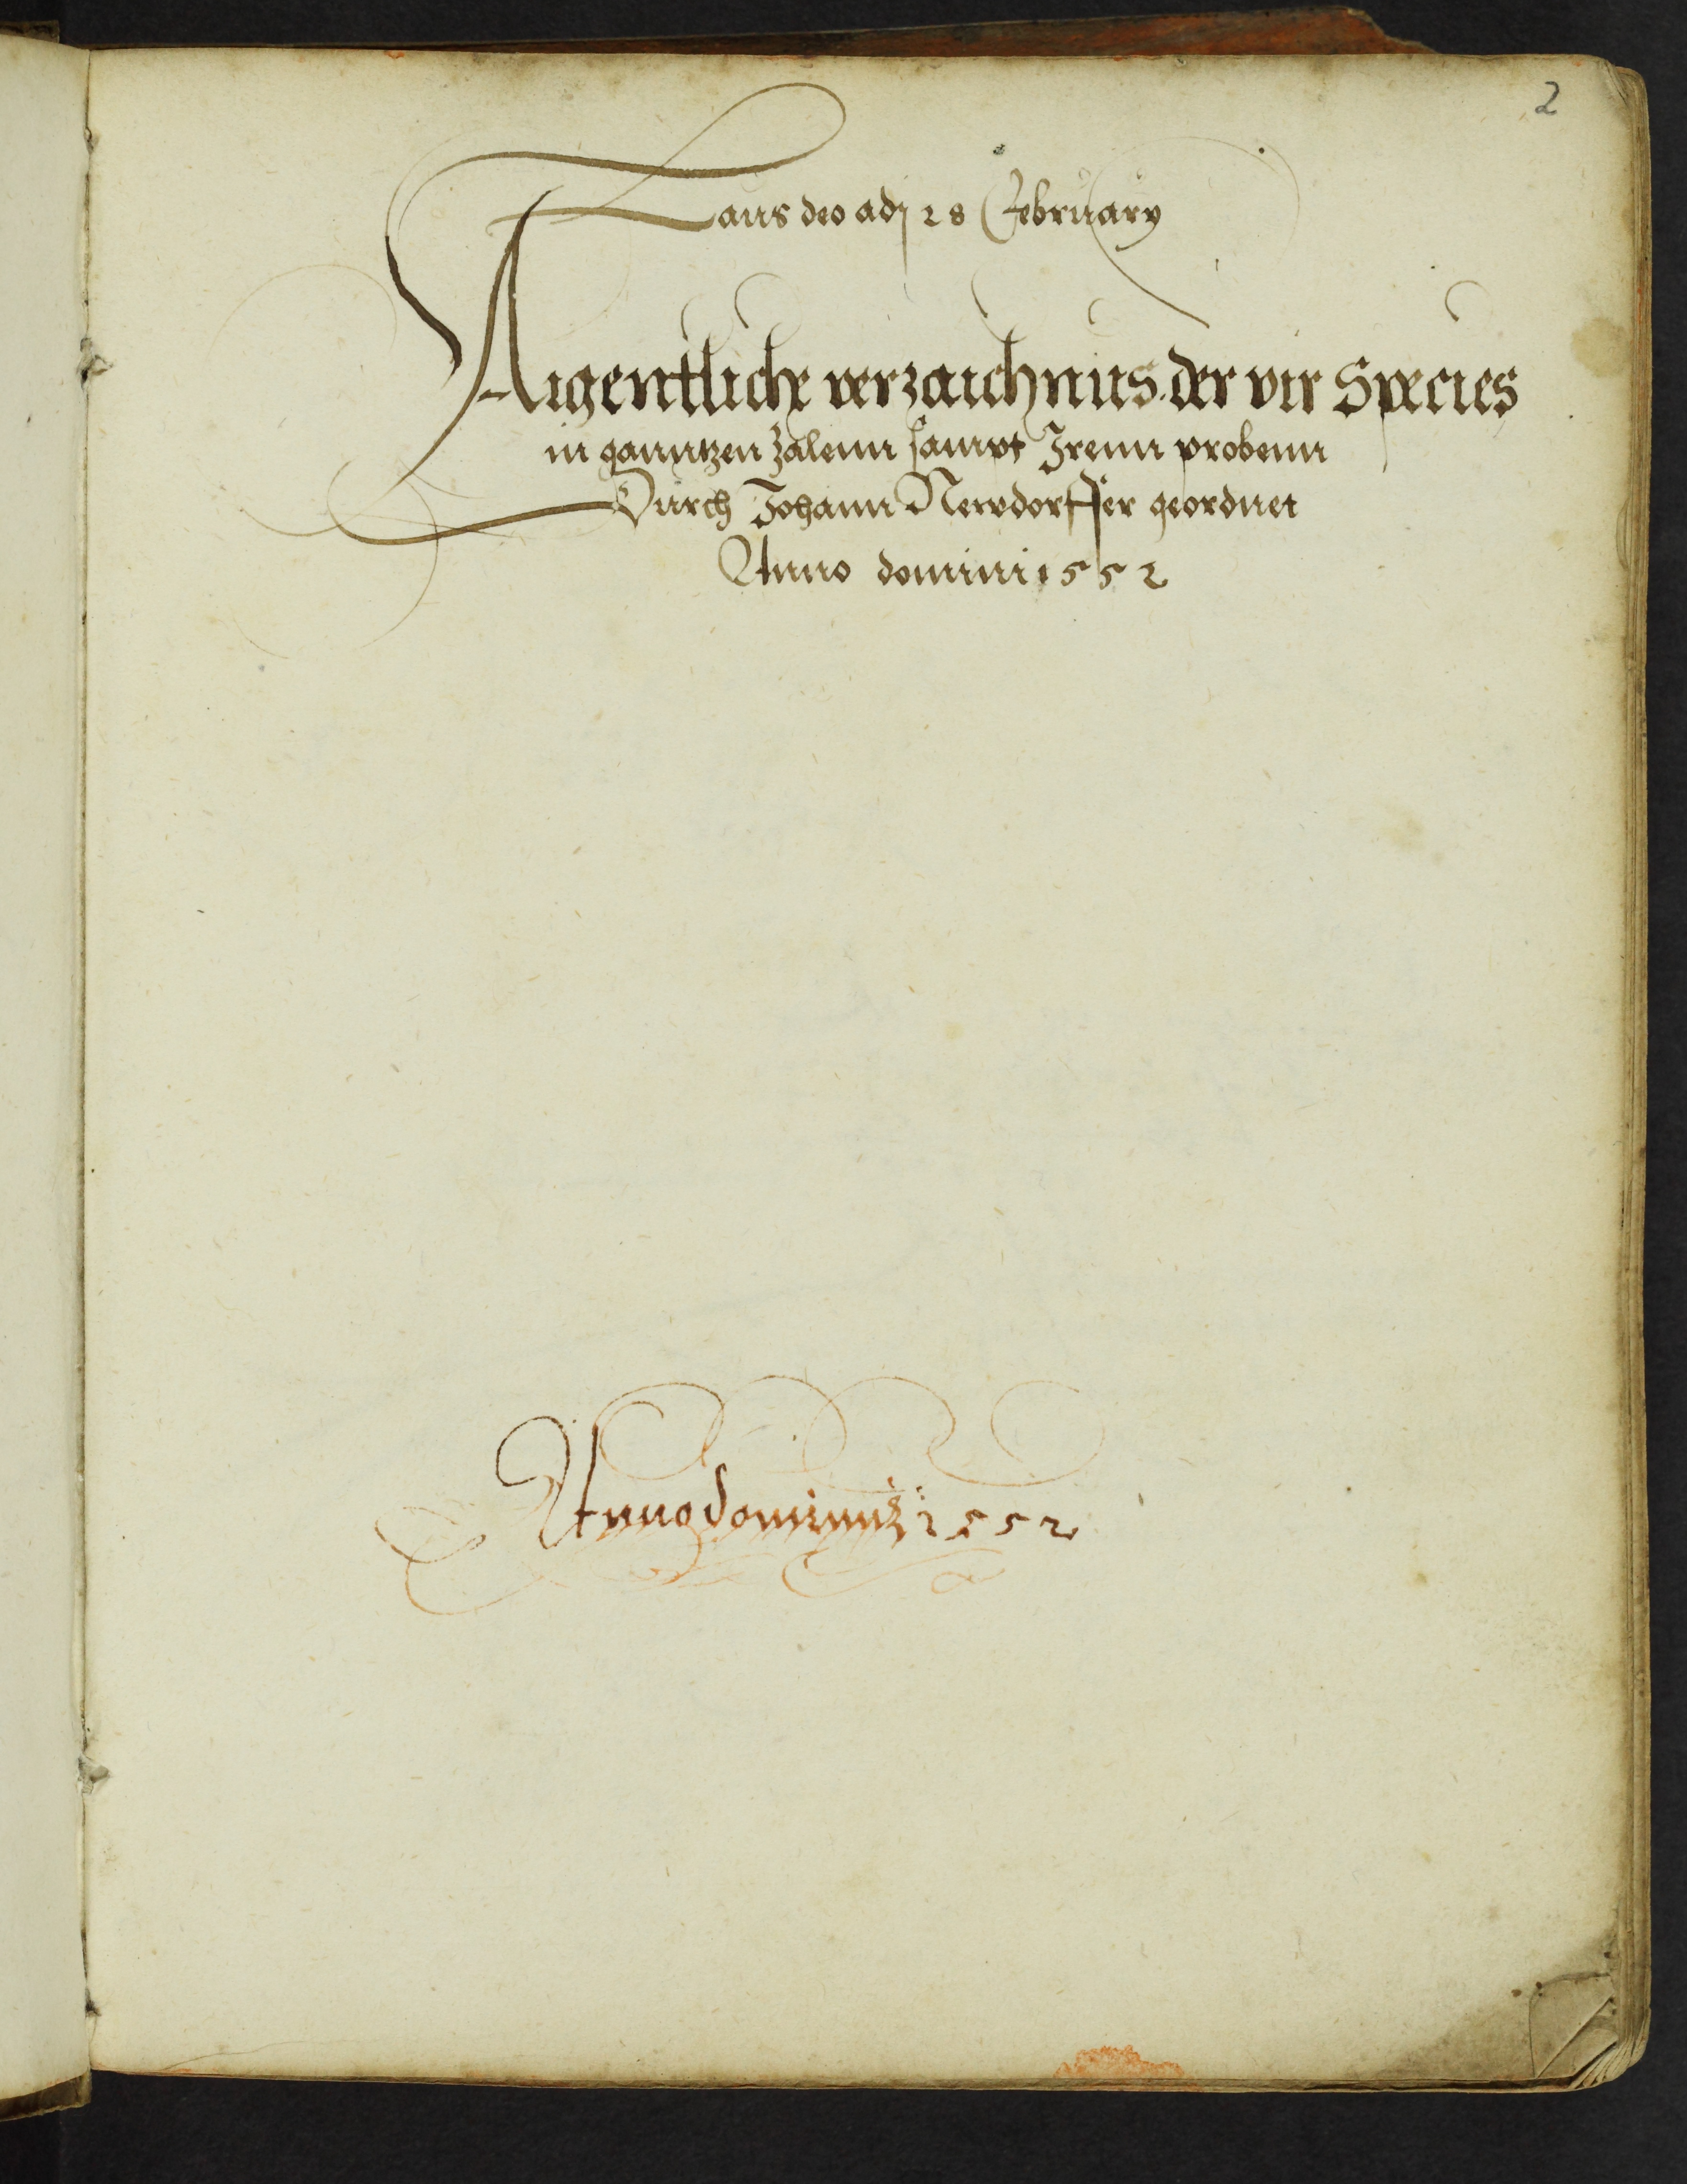 2
Laus deo adj 28 February
Aigentliche verzaichnus der vir Species
in ganntzen zalenn sampt Irenn probenn
Durch Johann Newdorffer geordnet
Anno domini 1552
Anno domini 1552